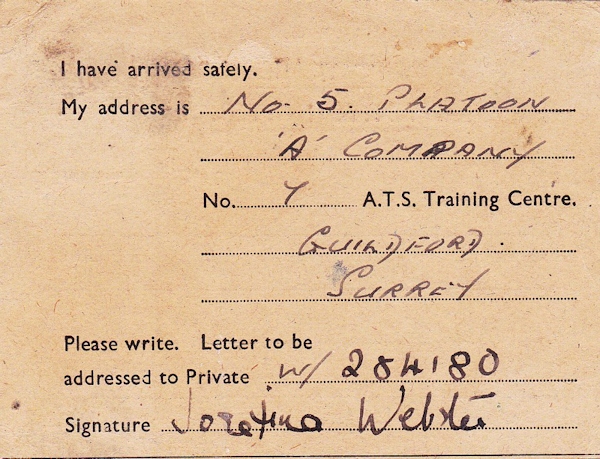 I have arrived safely.
My address is No. 5. PLATOON
'A' COMPANY
No. 7 A.T.S. Training Centre.
GUILDFORD.
SURREY
Please write. Letter to be
addressed to Private W/ 284180
Signature Webster